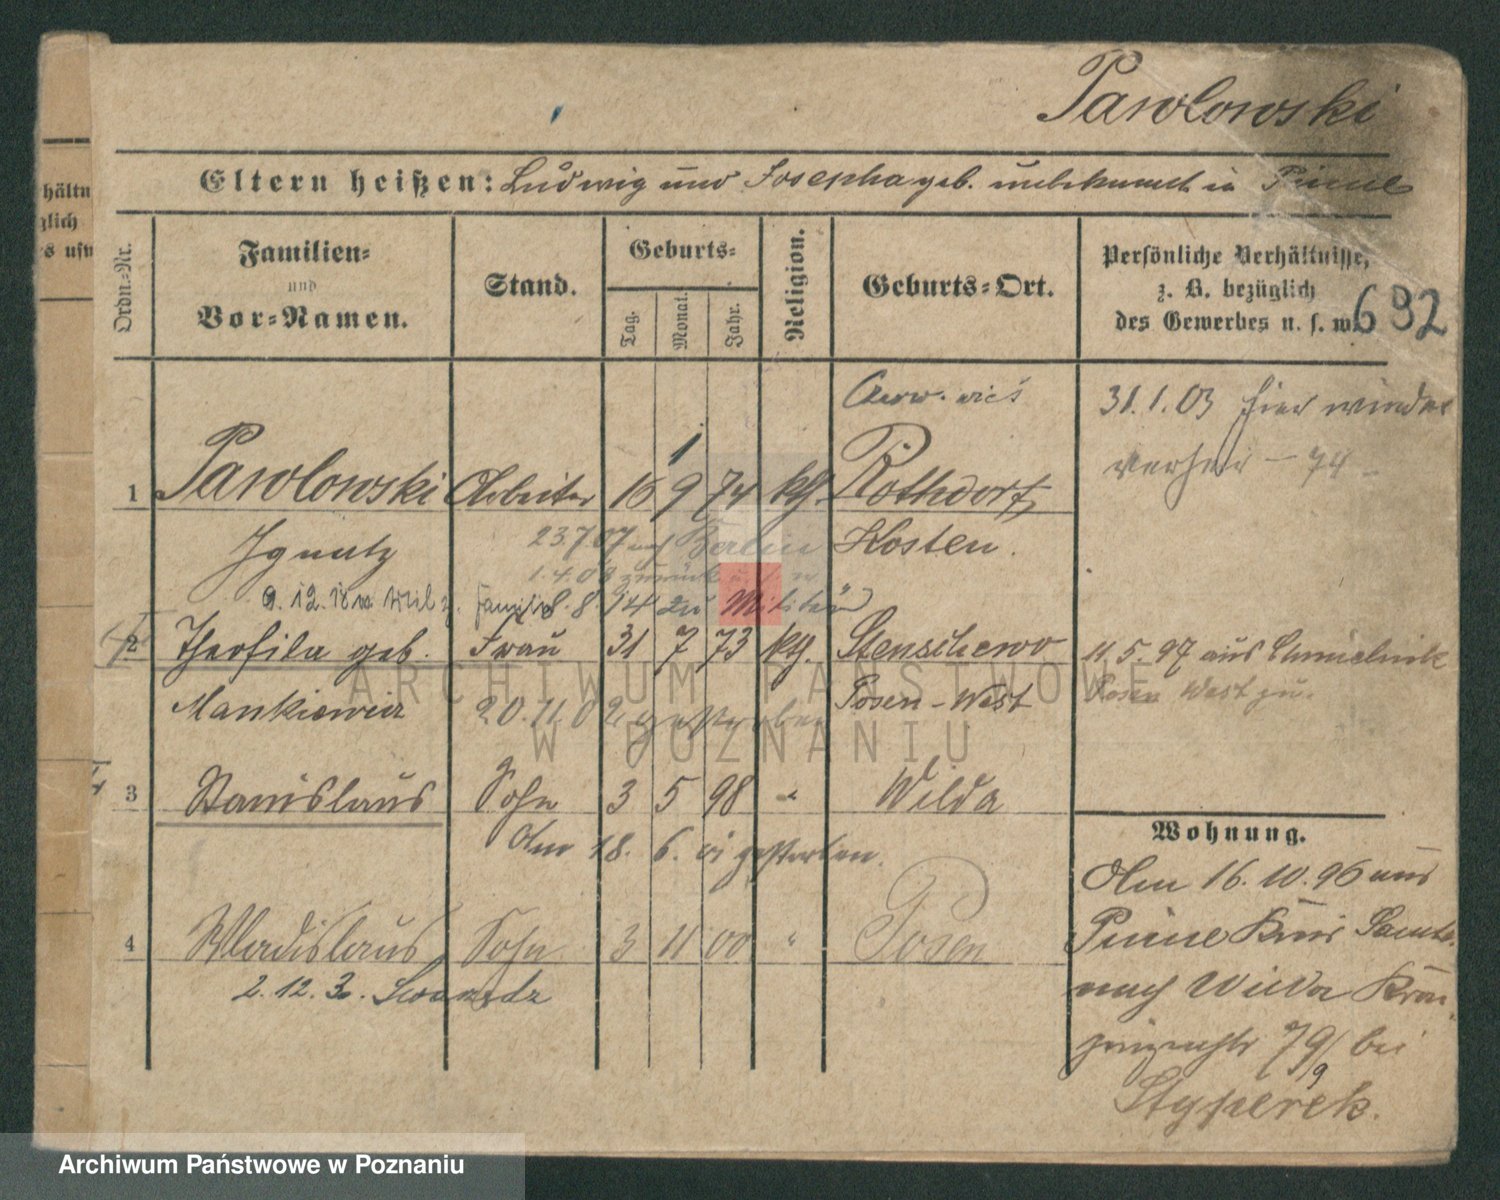 Pawlowski
Eltern heißen: Ludwig und Josepha geb. unbekannt in Pinne
hältn
glich
s usw
Ordn.-Nr.
Familien-
und
Vor-Namen.
Stand.
Geburts-
Tag.
Monat.
Jahr.
Religion.
Geburts-Ort.
Persönliche Verhältnisse,
z. B. bezüglich
des Gewerbes u. s. w.
692
31.1.03 hier wieder
74
1
1 Pawlowski Arbeiter 16 9 74 kth. Rothdorf
Ignatz
23.7.07 nach Berlin Kosten.
1.4.08 zurück
9.12.18 Familie 8.8.14 zu Militär
2 Theofila geb. Frau 31 7 73 kth. Stenschewo
11.5.97 aus
Mankiewicz 20.11.02 gestorben Posen-West
Posen West zu.
3 Stanislaus Sohn 3 5 98 " Wilda
Am 18. 6. 01 gestorben.
4 Wladislaus Sohn 3 11 00 " Posen
2.12.
Wohnung.
Am 16.10.96 aus
Pinne Kreis Samter
nach Wilda Kron-
prinzenstr 79 bei
9
Styperek.
ARCHIWUM PAŃSTWOWE
W POZNANIU
Archiwum Państwowe w Poznaniu